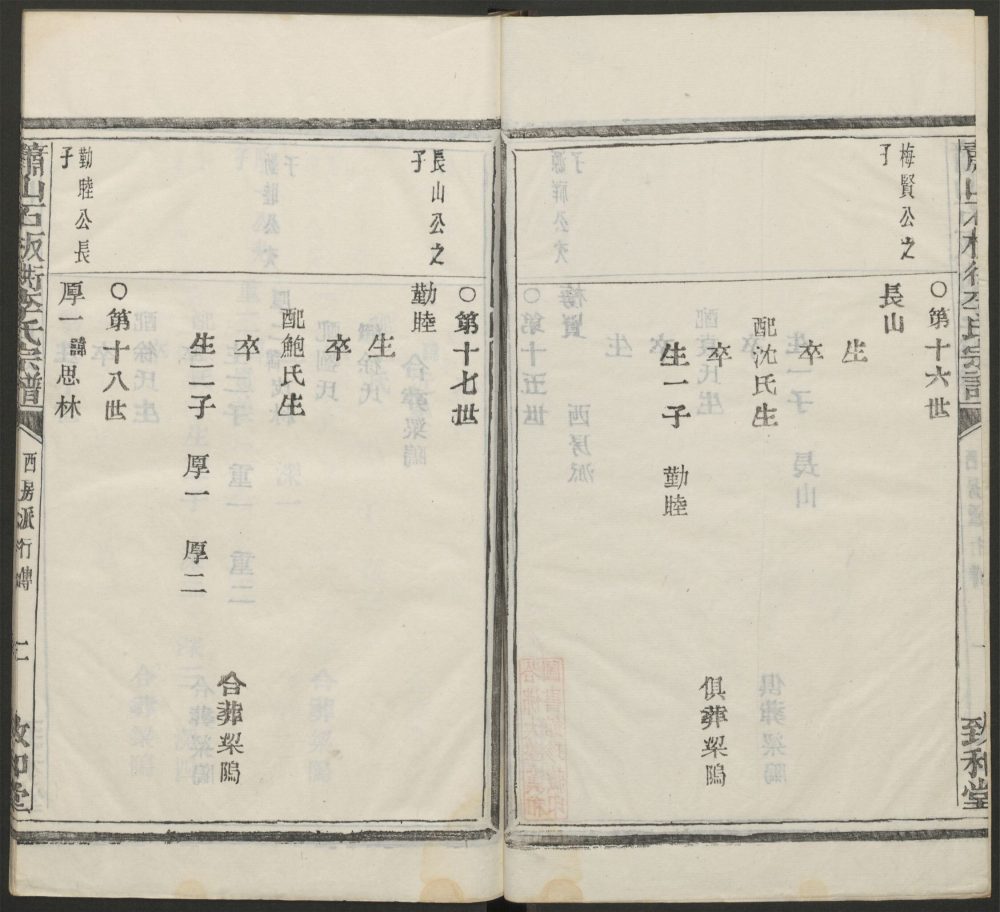 蕭山石板街李氏宗譜
致和堂
梅賢公之
子
○第十六世
長山
生
卒
配沈氏生
卒
俱葬梁隖
生一子 勤睦
長山公之
子
○第十七世
勤睦
生
卒
配鮑氏生
卒
合葬梁隖
生二子 厚一 厚二
勤睦公長
子
○第十八世
厚一 諱思林
蕭山石板街李氏宗譜
西房派行傳
二
致和堂